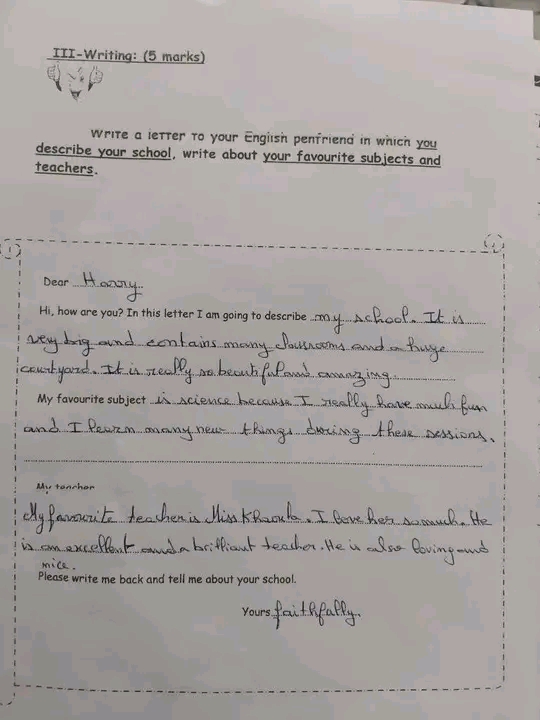 III-Writing: (5 marks)
Write a letter to your English penfriend in which you
describe your school, write about your favourite subjects and
teachers.
Dear Harry
Hi, how are you? In this letter I am going to describe my school. It is
very big and contains many classrooms and a huge
courtyard. It is really so beautiful and amazing.
My favourite subject is science because I really have much fun
and I learn many new things during these sessions.
My teacher
My favourite teacher is Miss Khaoula. I love her so much. He
is an excellent and a brilliant teacher. He is also loving and
nice.
Please write me back and tell me about your school.
Yours faithfally.